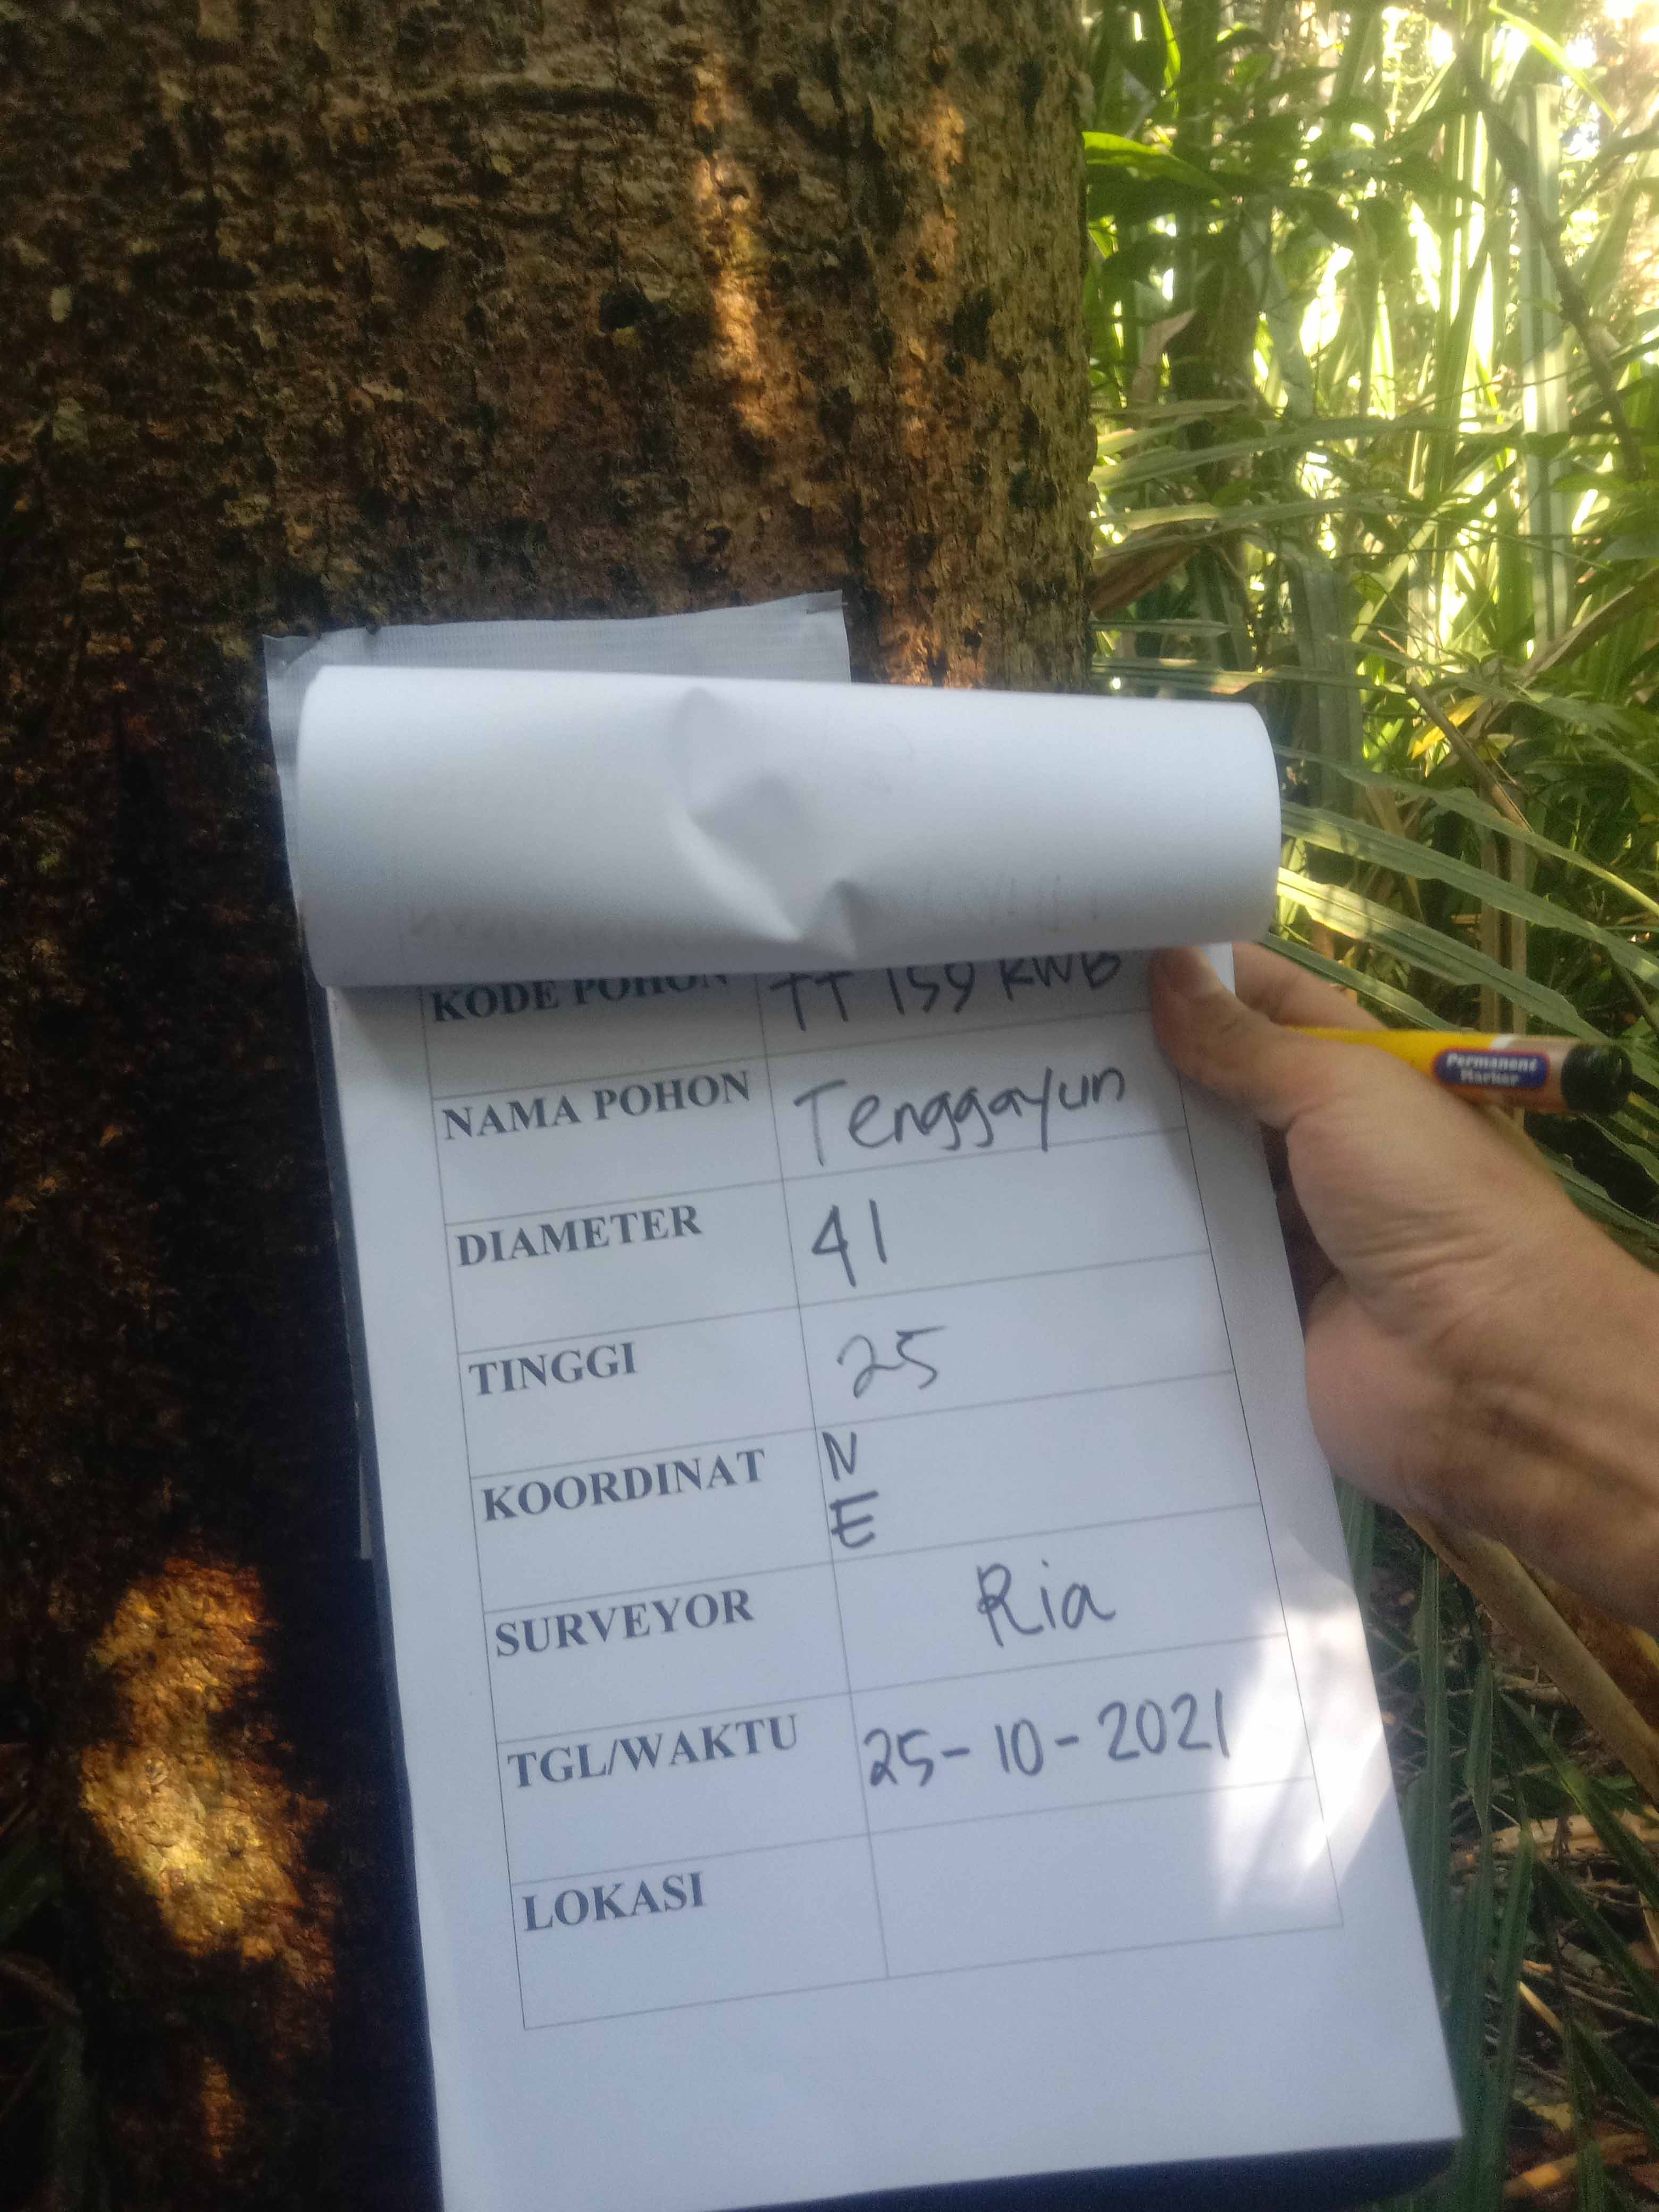 KODE POHON TT 159 KWB
NAMA POHON Tenggayun
DIAMETER 41
TINGGI 25
KOORDINAT N
E
SURVEYOR Ria
TGL/WAKTU 25-10-2021
LOKASI
Permanent
Marker